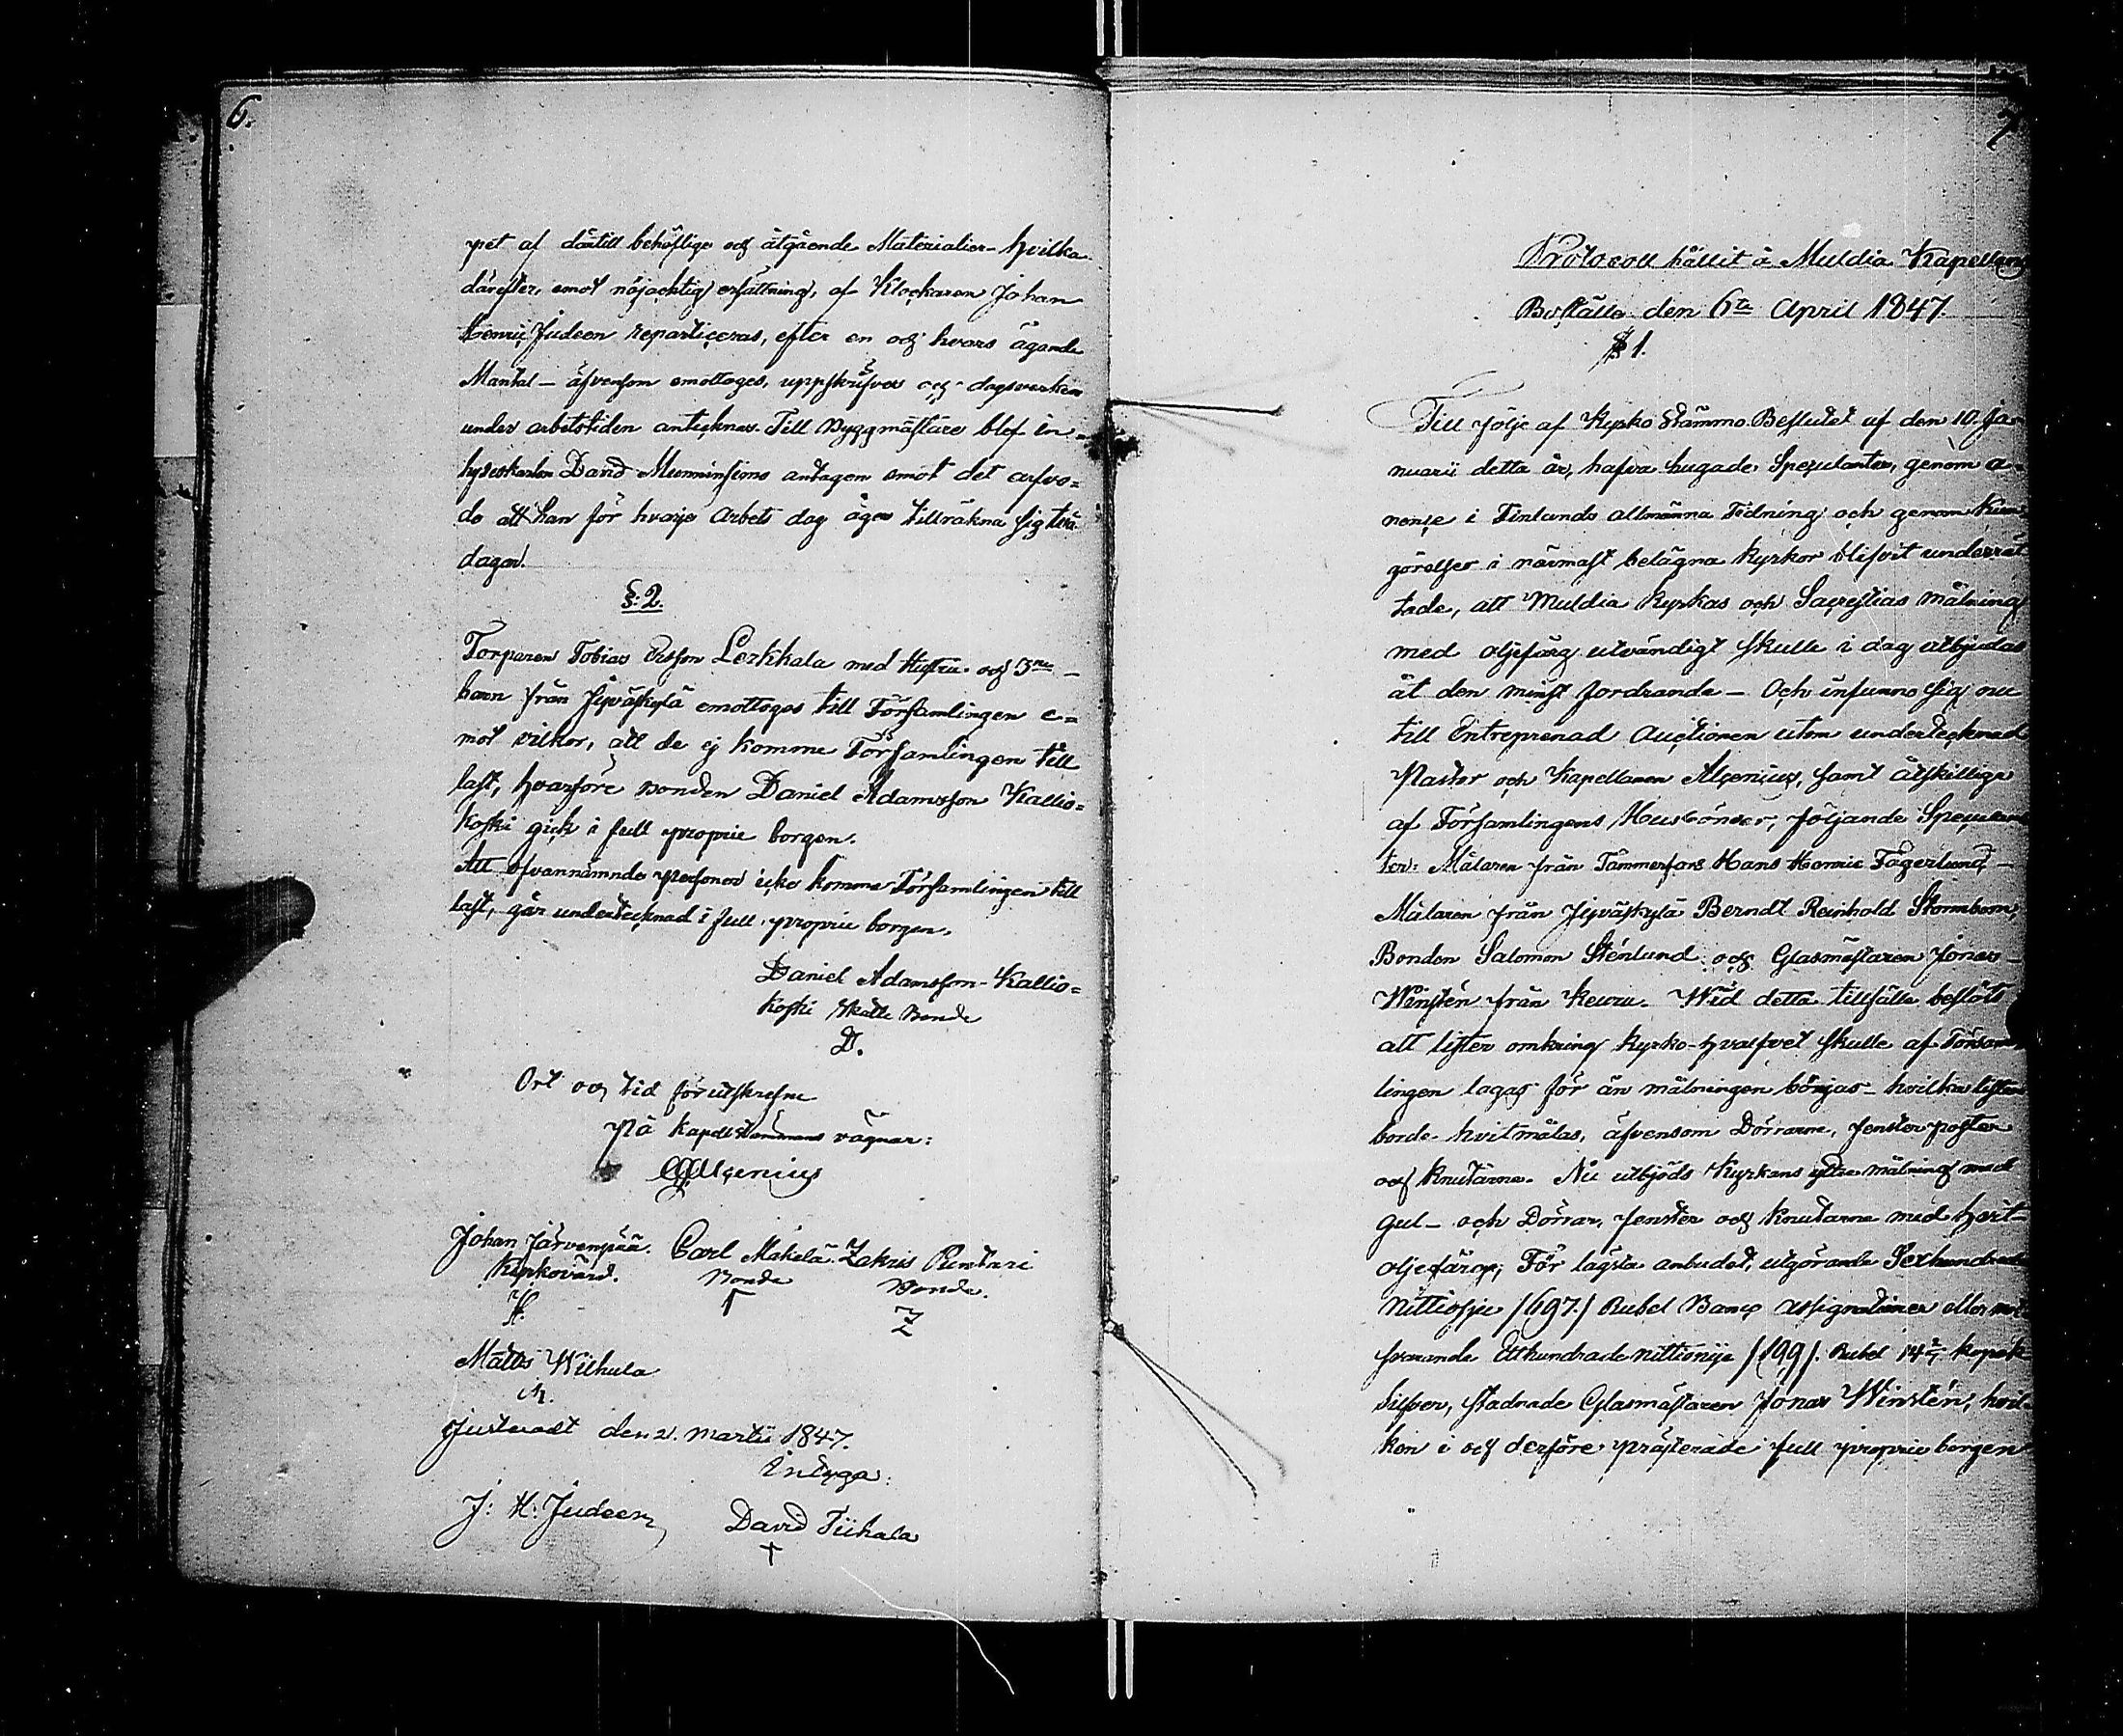 6.
pet af därtill behöflige och åtgående Materialier - hvilka
därefter, emot nöjacktig ersättning, af Klockaren Johan
Henric Judeen reparticeras, efter en och hvars ägande
Mantal - äfvensom emottoges, uppskrifves och dagsverken
under arbetstiden antecknas. Till Byggmästare blef in-
hyseskarlen David Memminsimo antagen emot det arfvo=
de att han för hvarje Arbets dag äger tillräkna sig två
dagar.
§: 2.
Torparen Tobias Ersson Lerkkala med Hustru och 3ne -
barn från Jyväskylä emottogos till Församlingen e=
mot vilkor, att de ej komme Församlingen till
last, hvarföre Bonden Daniel Adamsson Kallio=
koski gick i full proprie borgen.
Att ofvannämnde Personer icke komma Församlingen till
last, går undertecknad i full proprie borgen.
Daniel Adamsson - Kallio=
koski Skatte Bonde
D.
Ort och tid förutskrefne
På Kapellstämmans vägnar:
Algenius
Johan Järvenpää. Carl Mäkelä. Zakris Pentari
Kyrkovärd. Bonde Bonde.
Z
Matts Wilhula
M.
Justeradt den 21. Martii 1847.
Intyga:
J: H: Judeen David Tiihala
7
Protocoll hållit å Muldia Kapellans
Boställe den 6te April 1847.
§ 1.
Till följe af Kyrko Stämmo Beslutet af den 10. Ja-
nuarii detta år, hafva hugade Speculanter, genom a-
nonçe i Finlands allmänna Tidning och genom Kun-
görelser i närmast belägna Kyrkor blifvit underrät-
tade, att Muldia Kyrkas och Sacrestias målning
med oljefärg utvändigt skulle i dag utbjudas
åt den minst fordrande - Och infunno sig nu
till Entreprenad Auctionen utom undertecknad
Pastor och Kapellanen Algenius, samt åtskillige
af Församlingens Husbönder, följande Speculan
ter: Målaren från Tammerfors Hans Henric Fagerlund, -
Målaren från Jyväskylä Berndt Reinhold Stormbom,
Bonden Salomon Stenlund och Glasmästaren Jonas -
Winstén från Keuru. Wid detta tillfälle beslöts
att lister omkring kyrko-hvalfvet skulle af Försam
lingen lagas för än målningen börjas - hvilka lister
borde hvitmålas, äfvensom Dörrarne, fenster poster
och knutarne. Nu utbjöds Kyrkans yttre målning med
gul - och Dörrar, fenster och knutarne med hvit -
oljefärg; För lägsta anbudet, utgörande Sexhundrade
Nittiosju /697./ Rubel Banco Assignationer eller mot
svarande Etthundrade nittionije /199/. Rubel 14 2/7 kopek
Silfver, stadnade Glasmästaren Jonas Winstén, hvil-
ken i och derföre præsterade full proprie borgen